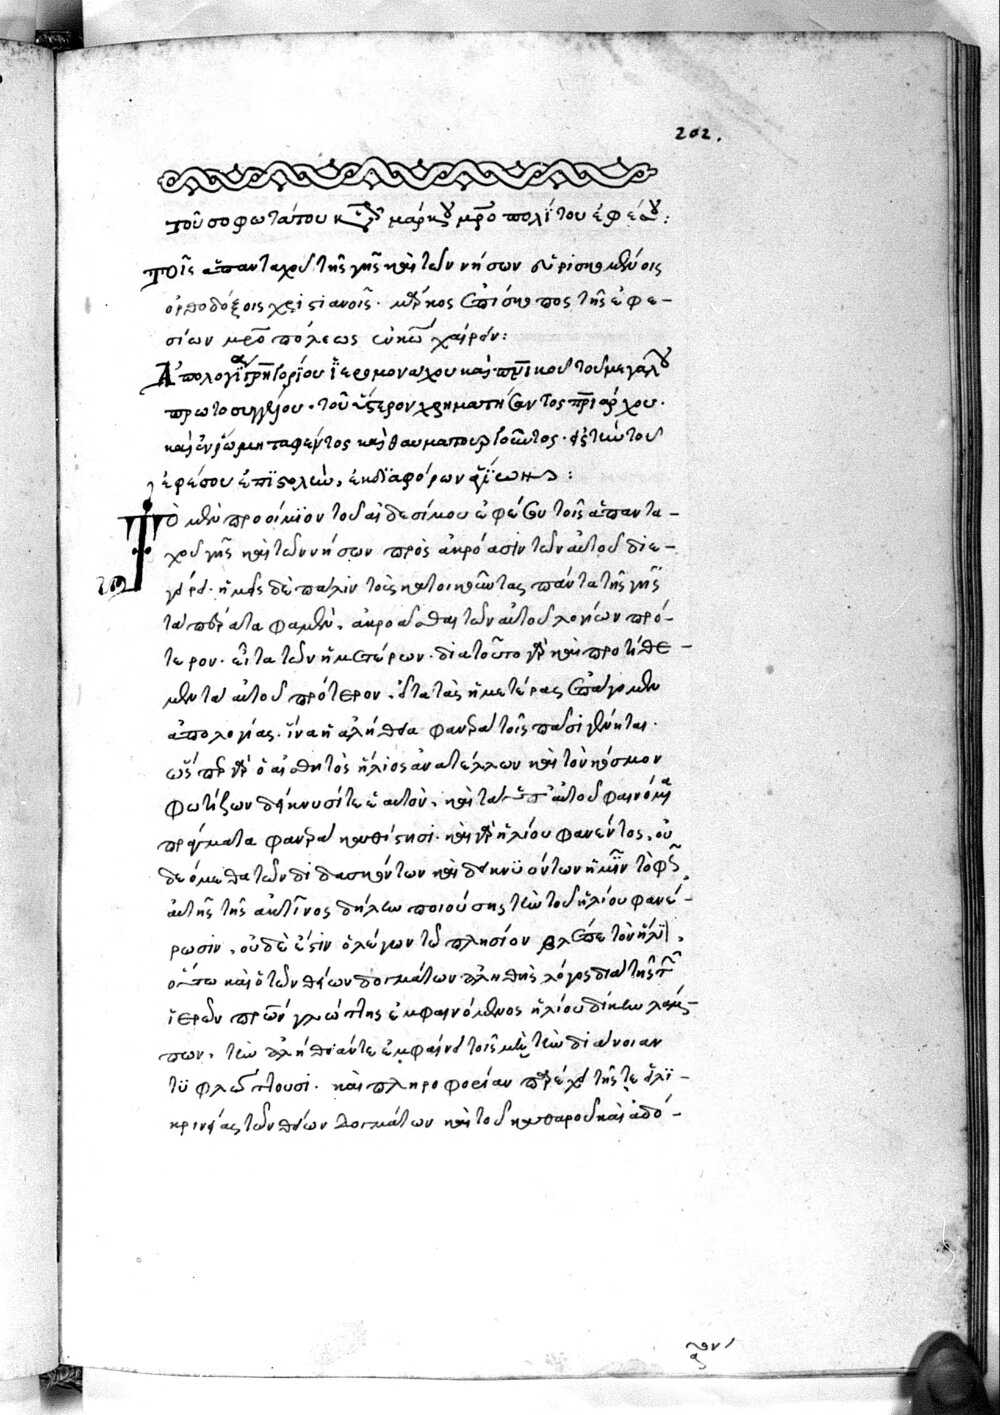 202.
τοῦ σοφωτάτου κυροῦ μάρκου μητροπολίτου ἐφέσου:
Τοῖς ἁπανταχοῦ τῆς γῆς καὶ τῶν νήσων εὑρισκομένοις
ὀρθοδόξοις χριστιανοῖς. μάρκος ἐπίσκοπος τῆς ἐφε-
σίων μητροπόλεως ἐν κυρίῳ χαίρειν:
Ἀπολογία γρηγορίου ἱερομονάχου καὶ πνευματικοῦ τοῦ μεγάλου
πρωτοσυγγέλου. τοῦ ὕστερον χρηματίσαντος πατριάρχου.
καὶ ἐν ῥώμῃ ταφέντος καὶ θαυματουργοῦντος. εἰς τὴν τοῦ
ἐφέσου ἐπιστολὴν, ἐκ διαφόρων ἁγίων:
Τὸ μὲν προοίμιον τοῦ αἰδεσίμου ἐφέσου τοῖς ἁπαντα-
χοῦ γῆς καὶ τῶν νήσων πρὸς ἀκρόασιν τῶν αὐτοῦ διε-
γείρει. ἡμεῖς δὲ πάλιν τοὺς κατοικοῦντας πάντα τῆς γῆς
τὰ πέρατα φαμὲν, ἀκροᾶσθαι τῶν αὐτοῦ λογίων πρό-
τερον. εἶτα τῶν ἡμετέρων. διὰ τοῦτο γὰρ καὶ προτίθε-
μεν τὰ αὐτοῦ πρότερον. εἶτα τὰς ἡμετέρας ἐπάγομεν
ἀπολογίας. ἵνα ἡ ἀλήθεια φανερὰ τοῖς πᾶσι γένηται.
ὥσπερ γὰρ ὁ αἰσθητὸς ἥλιος ἀνατέλλων καὶ τὸν κόσμον
φωτίζων δείκνυσί τε ἑαυτὸν, καὶ τὰ ὑπ' αὐτοῦ φαινόμενα
πράγματα φανερὰ καθίστησι. καὶ γὰρ ἡλίου φανέντος, οὐ
δεόμεθα τῶν διδασκόντων καὶ δεικνυόντων ἡμῖν τὸ φῶς,
αὐτῆς τῆς ἀκτῖνος δήλην ποιούσης τὴν τοῦ ἡλίου φανέ-
ρωσιν, οὐδὲ ἔστιν ὁ λέγων τῷ πλησίον βλέπε τὸν ἥλιον,
οὕτω καὶ ὁ τῶν θείων δογμάτων ἀληθὴς λόγος διὰ τῆς τῶν
ἱερῶν πατέρων γλώττης ἐμφαινόμενος ἡλίου δίκην λάμ-
πων, τὴν ἀλήθειάν τε ἐμφαίνει τοῖς μὴ τὴν διάνοιαν
τυφλώττουσι. καὶ πληροφορίαν παρέχει τῆς τε εἰλι-
κρινείας τῶν θείων δογμάτων καὶ τοῦ καθαροῦ καὶ ἀδό-